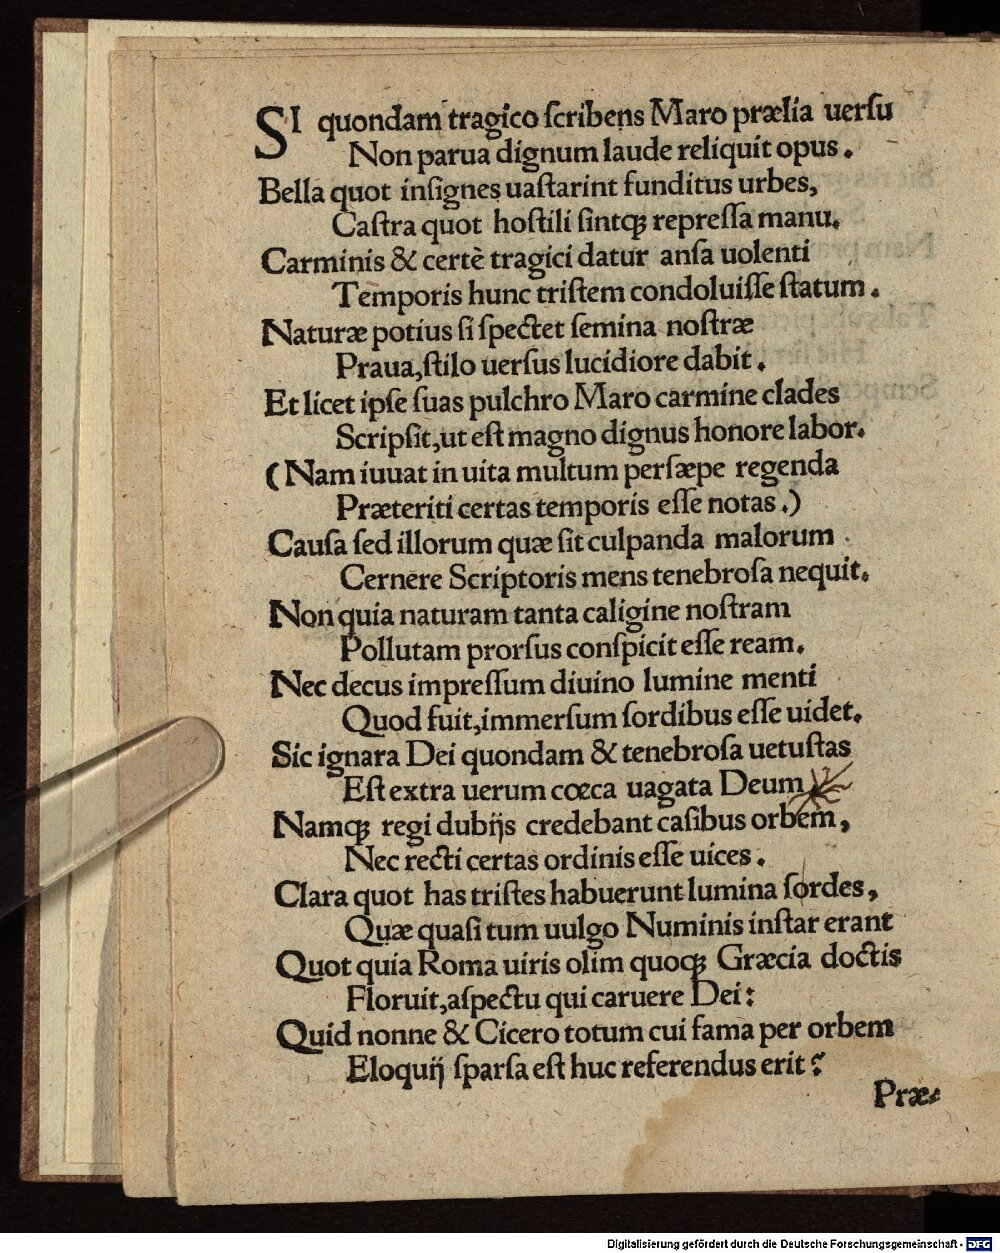 SI quondam tragico ſcribens Maro prælia uerſu
Non parua dignum laude reliquit opus.
Bella quot inſignes uaſtarint funditus urbes,
Caſtra quot hoſtili ſintqꝫ repreſſa manu.
Carminis & certè tragici datur anſa uolenti
Temporis hunc triſtem condoluiſſe ſtatum.
Naturæ potius ſi ſpectet ſemina noſtræ
Praua, ſtilo uerſus lucidiore dabit.
Et licet ipſe ſuas pulchro Maro carmine clades
Scripſit, ut eſt magno dignus honore labor.
(Nam iuuat in uita multum perſæpe regenda
Præteriti certas temporis eſſe notas.)
Cauſa ſed illorum quæ ſit culpanda malorum
Cernere Scriptoris mens tenebroſa nequit.
Non quia naturam tanta caligine noſtram
Pollutam prorſus conſpicit eſſe ream.
Nec decus impreſſum diuino lumine menti
Quod fuit, immerſum ſordibus eſſe uidet.
Sic ignara Dei quondam & tenebroſa uetuſtas
Eſt extra uerum cœca uagata Deum
Namqꝫ regi dubijs credebant caſibus orbem,
Nec recti certas ordinis eſſe uices.
Clara quot has triſtes habuerunt lumina ſordes,
Quæ quaſi tum uulgo Numinis inſtar erant
Quot quia Roma uiris olim quoqꝫ Græcia doctis
Floruit, aſpectu qui caruere Dei:
Quid nonne & Cicero totum cui fama per orbem
Eloquij ſparſa eſt huc referendus erit?
Præ-
Digitalisierung gefördert durch die Deutsche Forschungsgemeinschaft - DFG